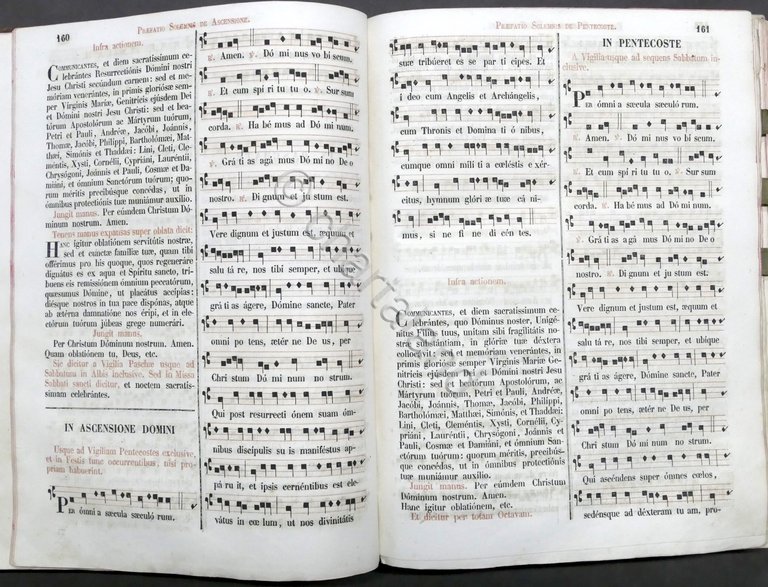 160
PRÆFATIO SOLEMNIS DE ASCENSIONE.
Infra actionem.
COMMUNICANTES, et diem sacratissimum ce-
lebrántes Resurrectiónis Dómini nostri
Jesu Christi secúndum carnem: sed et me-
móriam venerántes, in primis gloriósæ sem-
per Vírginis Maríæ, Genitrícis ejúsdem Dei
et Dómini nostri Jesu Christi: sed et bea-
tórum Apostolórum ac Mártyrum tuórum,
Petri et Pauli, Andréæ, Jacóbi, Joánnis,
Thomæ, Jacóbi, Philíppi, Bartholomǽi, Mat-
thǽi, Simónis et Thaddǽi: Lini, Cleti, Cle-
méntis, Xysti, Cornélii, Cypriáni, Lauréntii,
Chrysógoni, Joánnis et Pauli, Cosmæ et Da-
miáni, et ómnium Sanctórum tuórum; quo-
rum méritis precibúsque concédas, ut in
ómnibus protectiónis tuæ muniámur auxílio.
Jungit manus. Per eúmdem Christum Dó-
minum nostrum. Amen.
Tenens manus expansas super oblata dicit:
HANC ígitur oblatiónem servitútis nostræ,
sed et cunctæ famíliæ tuæ, quam tibi
offérimus pro his quoque, quos regeneráre
dignátus es ex aqua et Spíritu sancto, tri-
buens eis remissiónem ómnium peccatórum,
quæsumus Dómine, ut placátus accípias:
diésque nostros in tua pace dispónas, atque
ab ætérna damnatióne nos éripi, et in ele-
ctórum tuórum júbeas grege numerári.
Jungit manus.
Per Christum Dóminum nostrum. Amen.
Quam oblatiónem tu, Deus, etc.
Sic dicitur a Vigilia Paschæ usque ad
Sabbatum in Albis inclusive. Sed in Missa
Sabbati sancti dicitur, et noctem sacratís-
simam celebrántes.
IN ASCENSIONE DOMINI
Usque ad Vigiliam Pentecostes exclusive,
et in Festis tunc occurrentibus, nisi pro-
priam habuerint.
Per ómni a sæcula sæculó rum.
℟. Amen. ℣. Dó mi nus vo bís cum.
℟. Et cum spí ri tu tu o. ℣. Sur sum
corda. ℟. Ha bé mus ad Dó mi num.
℣. Grá ti as agá mus Dó mi no De o
nostro. ℟. Di gnum et ju stum est.
Vere dignum et justum est, æquum et
salu tá re, nos tibi semper, et ubíque
grá ti as ágere, Dómine sancte, Pater
omni po tens, ætér ne De us, per
Chri stum Dó mi num no strum.
Qui post resurrecti ónem suam óm-
nibus discípulis su is maniféstus ap-
pá ru it, et ipsis cernéntibus est ele-
vátus in cœ lum, ut nos divinitátis
PRÆFATIO SOLEMNIS DE PENTECOSTE.
161
suæ tribúeret es se par ti cipes. Et
í deo cum Angelis et Archángelis,
cum Thronis et Domina ti ó nibus,
cumque omni míli ti a cœléstis e xér-
citus, hymnum glóri æ tuæ cá ni-
mus, si ne fi ne di cén tes.
Infra actionem.
COMMUNICANTES, et diem sacratissimum ce-
lebrántes, quo Dóminus noster, Unigé-
nitus Fílius tuus, unítam sibi fragilitátis
nostræ substántiam, in glóriæ tuæ déxtera
collocávit: sed et memóriam venerántes, in
primis gloriósæ semper Vírginis Maríæ Ge-
nitrícis ejúsdem Dei et Dómini nostri Jesu
Christi: sed et beatórum Apostolórum, ac
Mártyrum tuórum, Petri et Pauli, Andréæ,
Jacóbi, Joánnis, Thomæ, Jacóbi, Philíppi,
Bartholomǽi, Matthǽi, Simónis, et Thaddǽi:
Lini, Cleti, Cleméntis, Xysti, Cornélii, Cy-
priáni, Lauréntii, Chrysógoni, Joánnis et
Pauli, Cosmæ et Damiáni, et ómnium San-
ctórum tuórum: quorum méritis, precibús-
que concédas, ut in ómnibus protectiónis
tuæ muniámur auxílio.
Jungit manus. Per eúmdem Christum
Dóminum nostrum. Amen.
Hanc ígitur oblatiónem, etc.
Et dicitur per totam Octavam.
IN PENTECOSTE
A Vigilia usque ad sequens Sabbatum in-
clusive.
Per ómni a sæcula sæculó rum.
℟. Amen. ℣. Dó mi nus vo bís cum.
℟. Et cum spí ri tu tu o. ℣. Sur sum
corda. ℟. Ha bé mus ad Dó mi num.
℣. Grá ti as agá mus Dó mi no De o
nostro. ℟. Di gnum et ju stum est.
Vere dignum et justum est, æquum et
salu tá re, nos tibi semper, et ubíque
grá ti as ágere, Dómine sancte, Pater
omni po tens, ætér ne De us, per
Chri stum Dó mi num no strum.
Qui ascéndens super ómnes cœlos,
sedénsque ad déxteram tu am, pro-